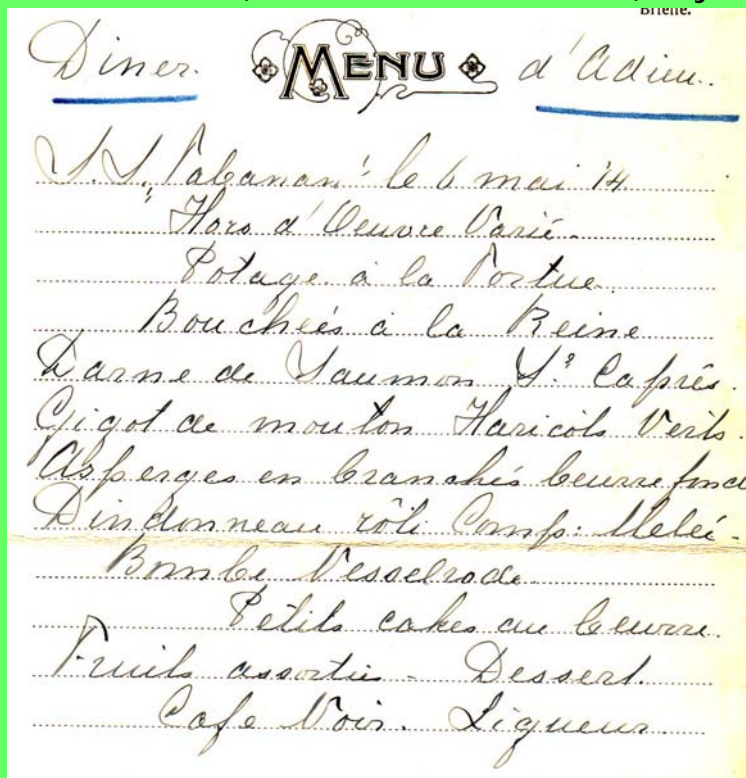 Brielle.
Diner. MENU d'Adieu.
S.S. "Tabanan" le 6 mai '14
Hors d'Oeuvre Varié.
Potage à la Tortue.
Bouchées à la Reine
Darne de Saumon Sᵉ Caprês.
Gigot de mouton Haricots Verts.
Asperges en branchés beurre fond
Dindonneau rôti Comp: Meleé.
Bombe Nesselrode
Petits cakes au beurre.
Fruits assortis - Dessert.
Cafe Noir. Liqueur.